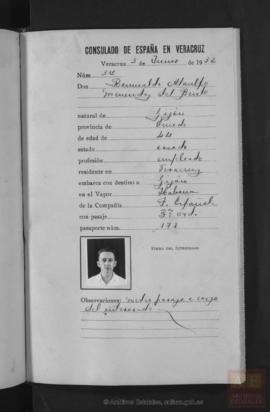 CONSULADO DE ESPAÑA EN VERACRUZ
Veracruz 3 de Junio de 1932
Núm. 34
Don Romualdo Ataulfo
Menendez del Busto
natural de Gijón
provincia de Oviedo
de edad de 44
estado casado
profesión empleado
residente en Veracruz
embarca con destino a Gijón
en el Vapor Habana
de la Compañía T. Española
con pasaje 3ª Ord.
pasaporte núm. 173
FIRMA DEL INTERESADO
Observaciones: medio pasaje a cargo
del interesado
© Archivos Estatales, cultura.gob.es